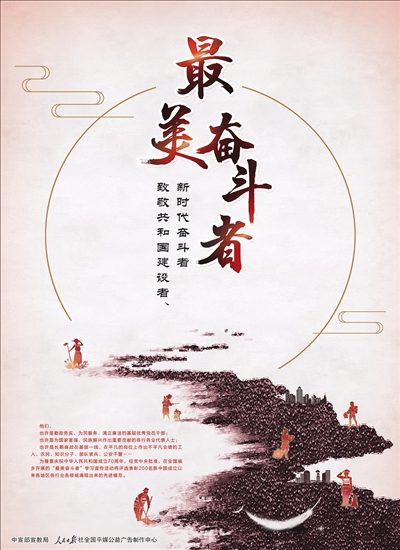 最美奋斗者
致敬共和国建设者、
新时代奋斗者
他们，
也许是勤政务实、为民服务、清正廉洁的基层优秀党员干部；
也许是为国家富强、民族振兴作出重要贡献的各行各业代表人士；
也许是长期奋战在基层一线、在平凡的岗位上作出不平凡业绩的工
人、农民、知识分子、部队官兵、公安干警……
为隆重庆祝中华人民共和国成立70周年，经党中央批准，在全国城
乡开展的“最美奋斗者”学习宣传活动将评选表彰200名新中国成立以
来各地区各行业各领域涌现出来的先进模范。
中宣部宣教局 人民日报社全国平媒公益广告制作中心